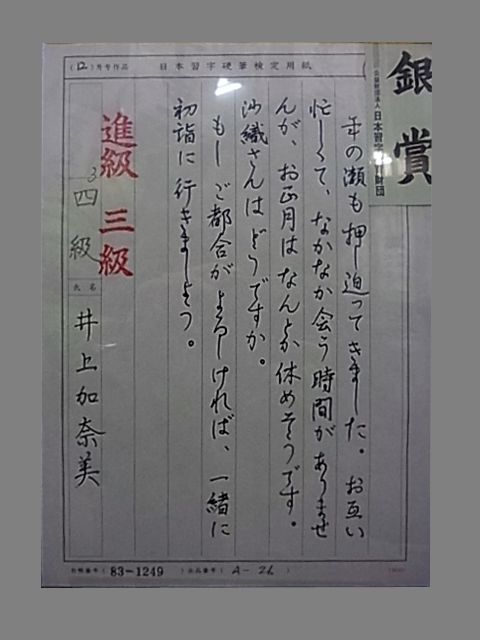 (12)月号作品 日本習字硬筆検定用紙
銀賞
日本習字
財団
年の瀬も押し迫ってきました。お互い
忙しくて、なかなか会う時間がありませ
んが、お正月はなんとか休めそうです。
沙織さんはどうですか。
もしご都合がよろしければ、一緒に
初詣に行きましょう。
進級 三級
3
四級
氏名
井上加奈美
83-1249
A-26